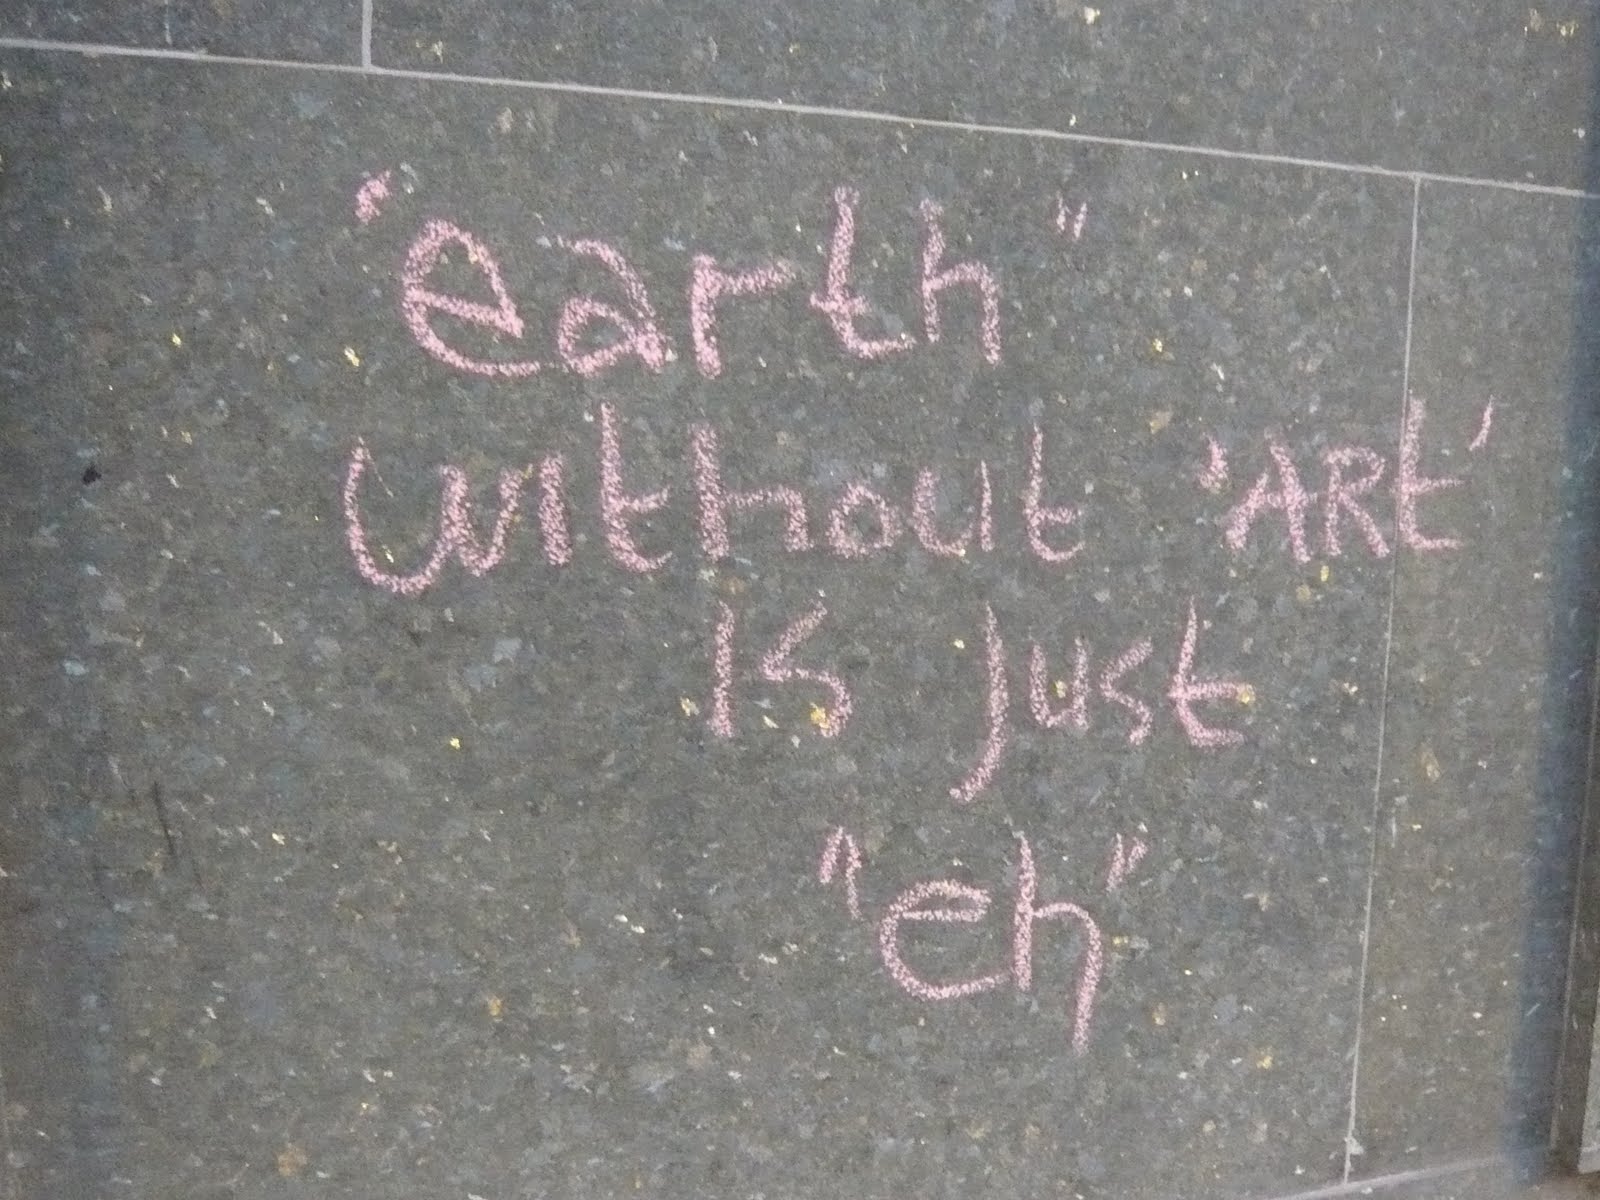 "earth"
without 'ARt'
is just
"eh"